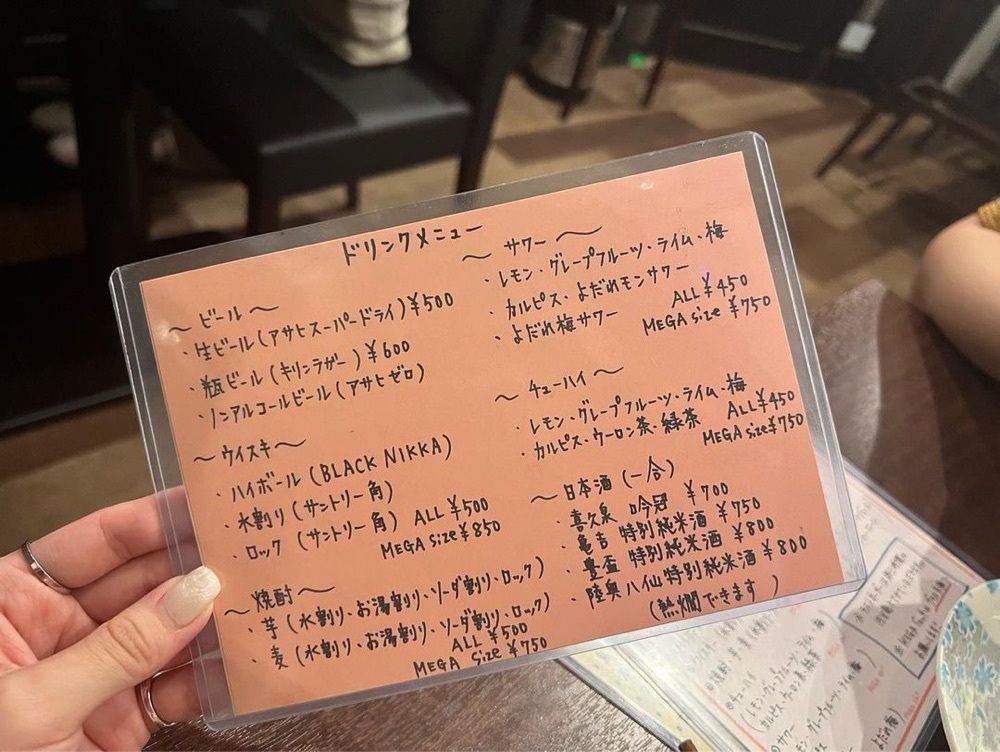 ドリンクメニュー
～ビール～
・生ビール(アサヒスーパードライ)¥500
・瓶ビール(キリンラガー)¥600
・ノンアルコールビール(アサヒゼロ)
～ウイスキー～
・ハイボール(BLACK NIKKA)
・水割り(サントリー角)
・ロック(サントリー角) ALL ¥500
MEGA size ¥850
～焼酎～
・芋(水割り・お湯割り・ソーダ割り・ロック)
・麦(水割り・お湯割り・ソーダ割り・ロック)
ALL ¥500
MEGA size ¥750
～サワー～
・レモン・グレープフルーツ・ライム・梅
・カルピス・よだれモンサワー
・よだれ梅サワー ALL ¥450
MEGA size ¥750
～チューハイ～
・レモン・グレープフルーツ・ライム・梅
・カルピス・ウーロン茶・緑茶 ALL ¥450
MEGA size ¥750
～日本酒(一合)
・喜久泉 吟冠 ¥700
・亀吉 特別純米酒 ¥750
・豊盃 特別純米酒 ¥800
・陸奥八仙特別純米酒 ¥800
(熱燗できます)